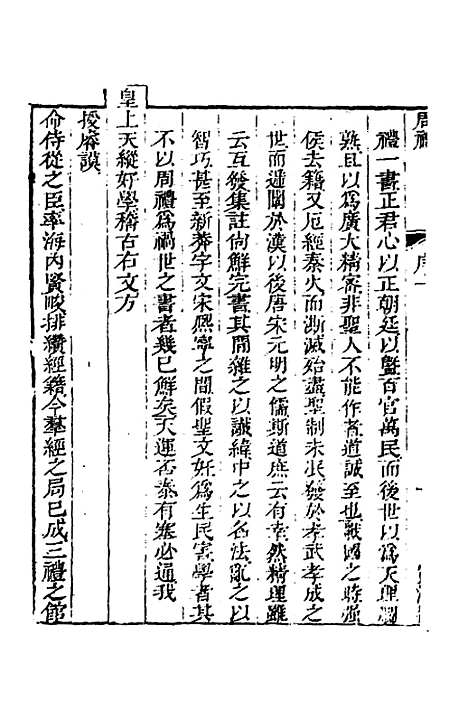 周禮 序 一
禮一書正君心以正朝廷以曁百官萬民而後世以爲天理爛
熟且以爲廣大精密非聖人不能作者道誠至也戰國之時強
侯去籍又厄經秦火而澌滅殆盡聖制未泯發於孝武孝成之
世而遞闡於漢以後唐宋元明之儒斯道庶云有幸然精理雖
云互發集註尙鮮完書其間雜之以讖緯中之以名法亂之以
智巧甚至新莽字文宋熙寧之間假聖文奸爲生民害學者其
不以周禮爲禍世之書者幾已鮮矣天運否泰有塞必通我
皇上天縱好學稽古右文方
授廉謨
命侍從之臣率海內賢畯排纘經籍今羣經之局已成三禮之館